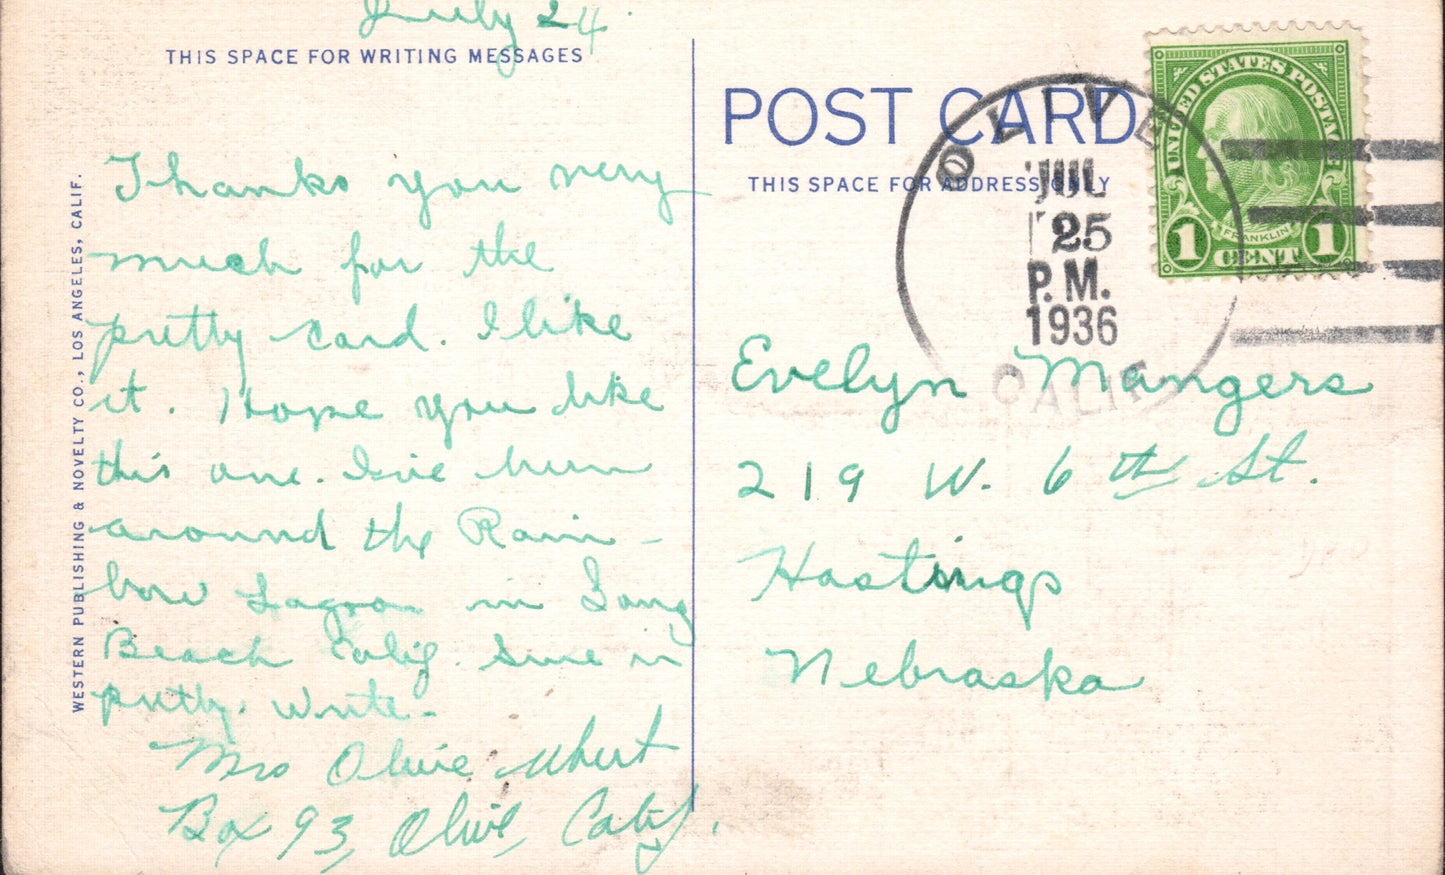 July 24.
THIS SPACE FOR WRITING MESSAGES
Thanks you very
much for the
pretty card. I like
it. Hope you like
this one. I've been
around the Rain-
bow Lagoon in Long
Beach Calif. Sure is
pretty. Write-
Mrs Olive
Box 93, Olive, Calif.
WESTERN PUBLISHING & NOVELTY CO., LOS ANGELES, CALIF.
POST CARD
THIS SPACE FOR ADDRESS ONLY
OLIVE
JUL
25
P.M.
1936
CALIF.
UNITED STATES POSTAGE
FRANKLIN
1 CENT 1
Evelyn Mangers
219 W. 6th St.
Hastings
Nebraska